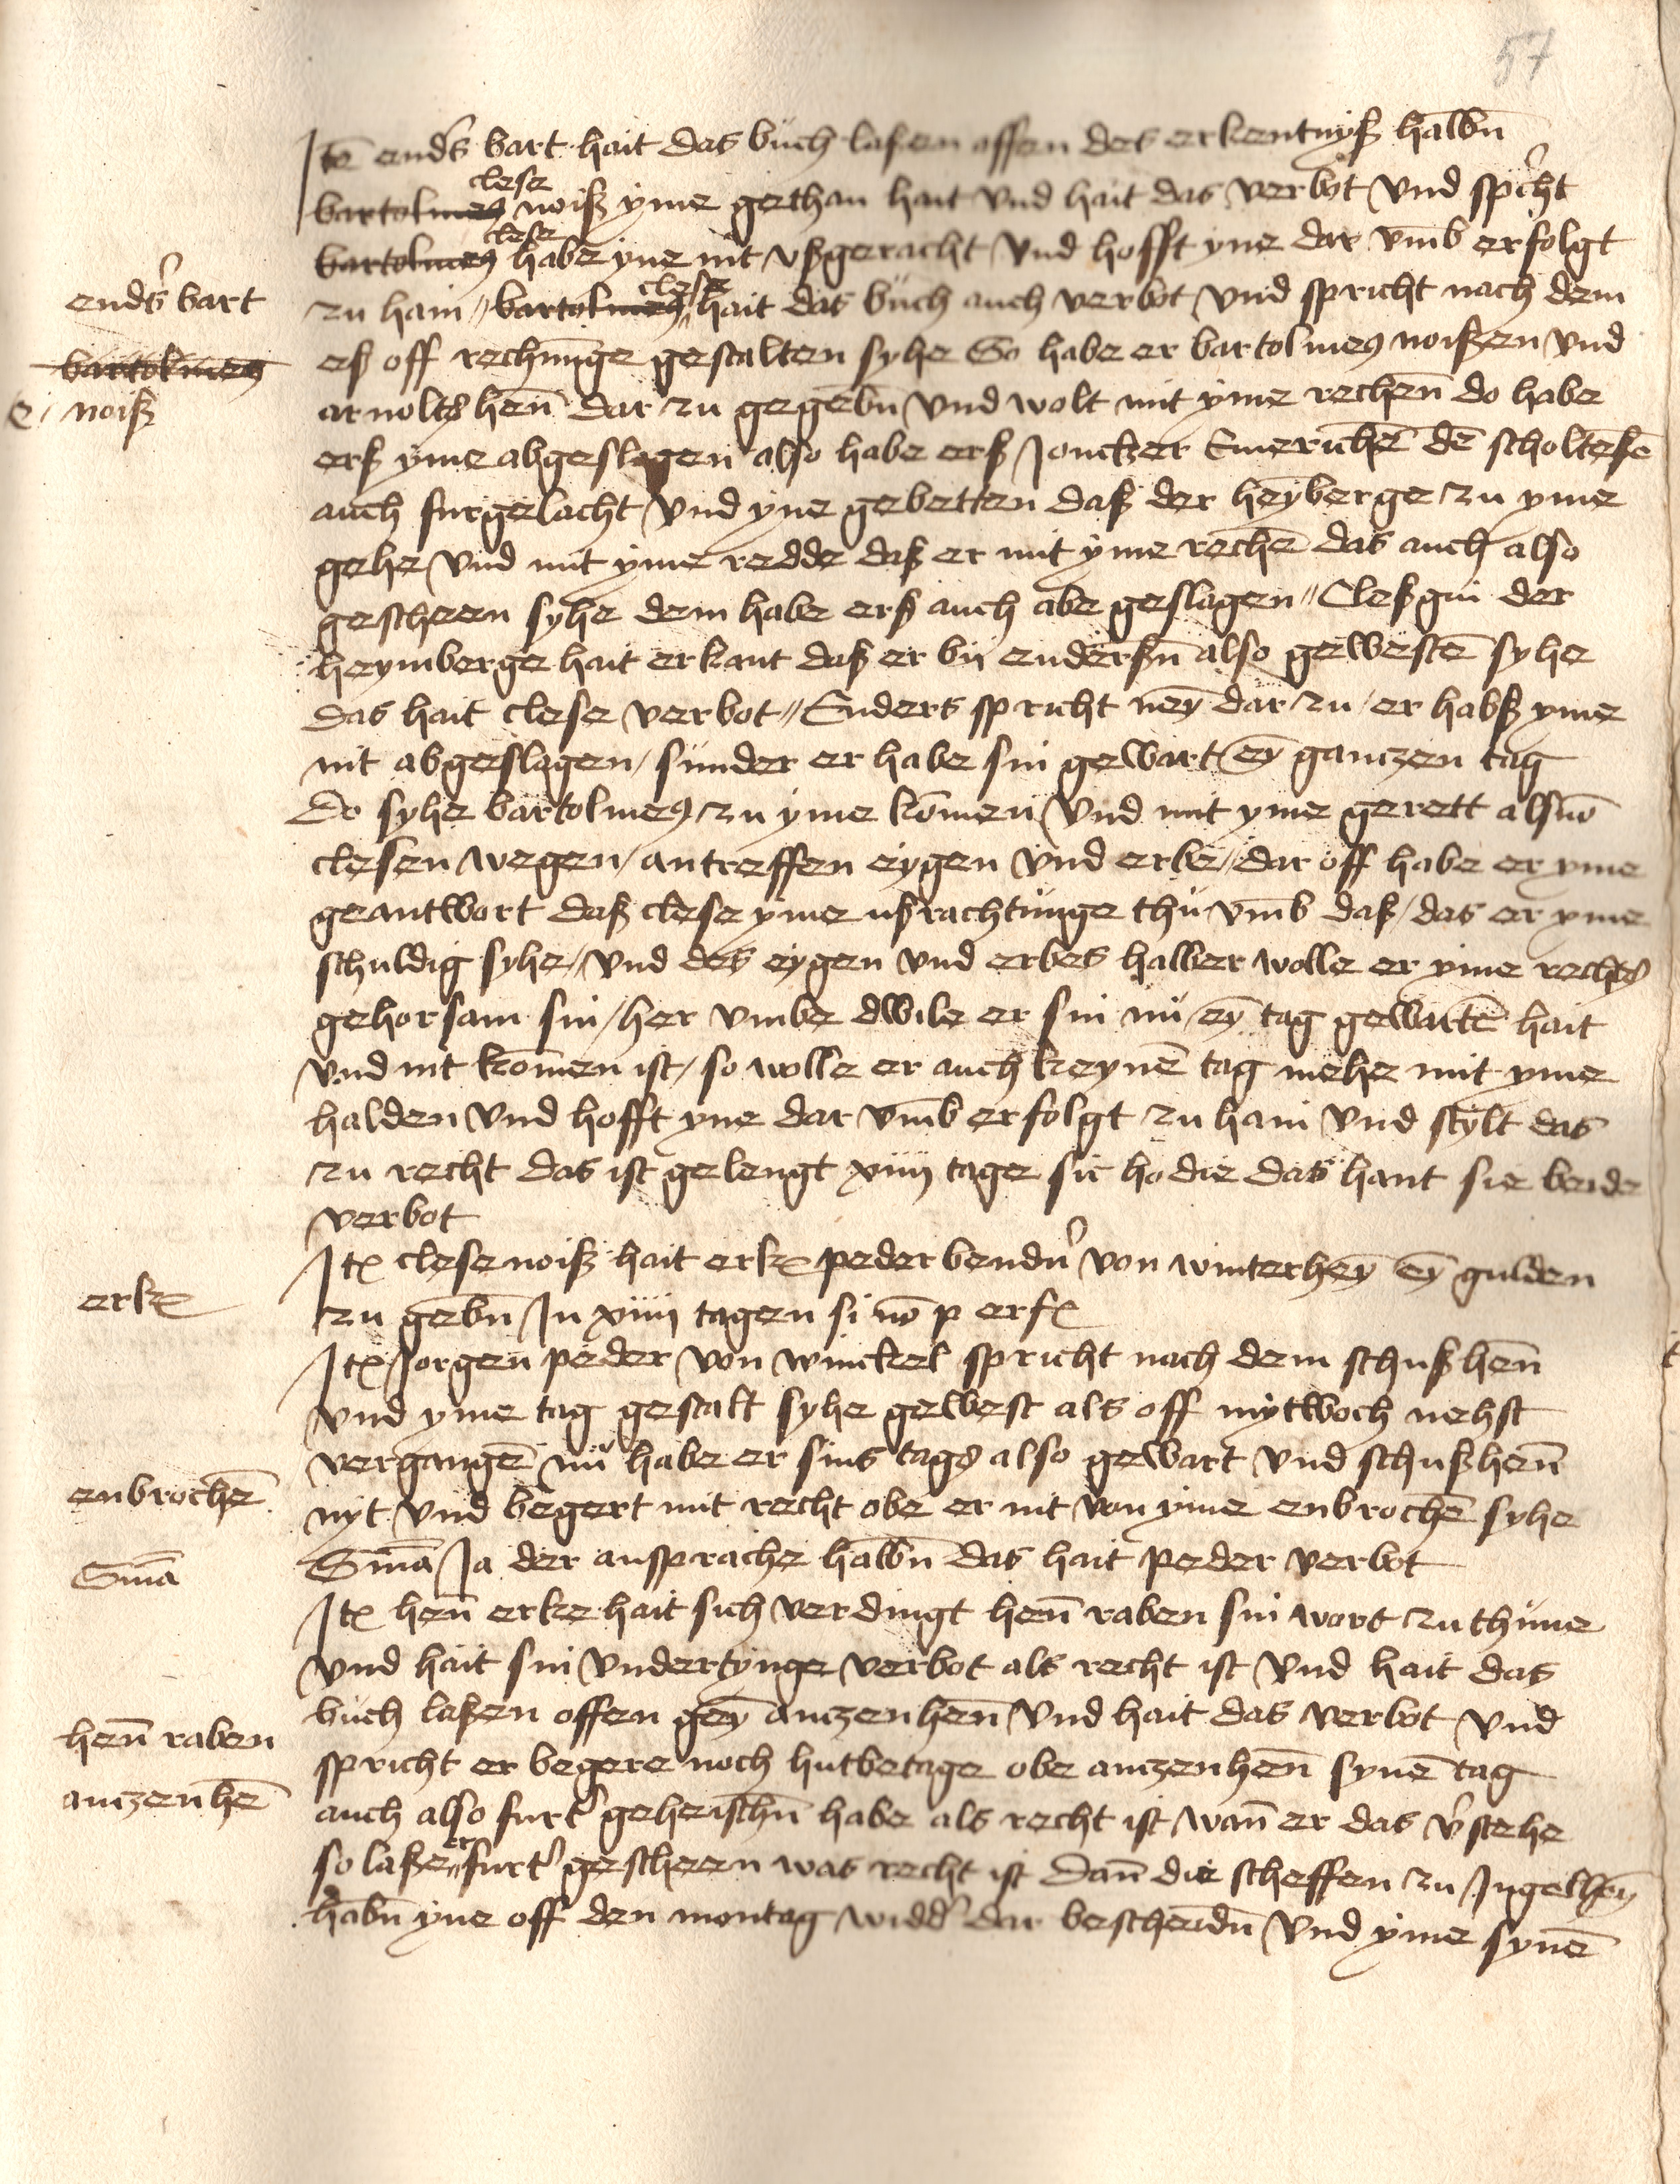 57
Itē endẜ bart hait das buch laßen offen des erkentnyß halbn̄
clese
bartolmeꝰ noiß yme gethan hait vnd hait das verbot vnd spͥcht
clese
bartolmeꝰ habe yne nit vßgeracht vnd hofft yne dar vmb erfolgt
clese
zu hain // bartolmeꝰ hait das buch auch verbot vnd spricht nach dem
eß off rechnūge gestalten syhe So habe er bartolmeꝰ noißen vnd
arnoltꝭ hen̄ dar zu gegebn̄ vnd wolt mit yme rechen̄ do habe
erß yme abgeslagen also habe erß Jonckher Emerichē dē scholteßē
auch furgelacht vnd yne gebetten daß der heȳberge zu yme
gehe vnd mit yme redde daß er mit yme rechē das auch also
gescheen syhe dem habe erß auch abe geslagen // Cleßgin der
heymberge hait erkant daß er bij enderßn̄ also gewestē syhe
das hait clese verbot // Enders spricht neȳ dar zu / er habß yme
nit abgeslagen / sunder er habe sin gewart eȳ ganczen tag
Do syhe bartolmeꝰ zu yme kōmen vnd mit yme gerett als vō
clesen wegen / antreffen eygen vnd erbe / dar off habe er yme
geantwort daß clese yme ußrachtunge thu vmb daß / das er yme
schuldig syhe / vnd des eygen vnd erbes halber wolle er yme rechtꝭ
gehorsam sin / her vmbe dwile er sin nu eȳ tag gewartē hait
vnd nit kōmen ist / so wolle er auch keynē tag mehe mit yme
halden vnd hofft yne dar vmb erfolgt zu hain vnd stylt das
zu recht das ist gelengt xiiij tage sic hodie das hant sie beide
verbot
Itꝫ clese noiß hait erkꝫ peder bendn̄ von winterheȳ eȳ gulden
zu gebn̄ In xiiij tagen si nō p erfꝫ
Itꝫ Jorgen peder von winckel spricht nach dem schußhen̄
vnd yme tag gestalt syhe gewest als off mytwoch nehst
vergangē nu habe er sins tagꝭ also gewart vnd schußhen̄
nyt vnd begert mit recht obe er nit von yme enbrochē syhe
Sm̄a Ja der ansprache halbn̄ das hait peder verbot
Itꝫ hen̄ erke hait sich verdingt hen̄ raben sin wort zu thune
vnd hait sin vndertynge verbot als recht ist vnd hait das
buch laßen offen geȳ anczenhen̄ vnd hait das verbot vnd
spricht er begere noch hutbetage obe anczenhen̄ synē tag
auch also furtˀ geheischn̄ habe als recht ist wan̄ er das v̓stehe
er
so laße furtˀ gescheen was recht ist dan̄ die scheffen zu Ingelheȳ
habn̄ yne off den montag widdˀ dar bescheidn̄ vnd yme synē
endẜ bart
bartolmeꝰ
noiß
erkꝫ
enbrochē
Sm̄a
hen̄ raben
anczenhē